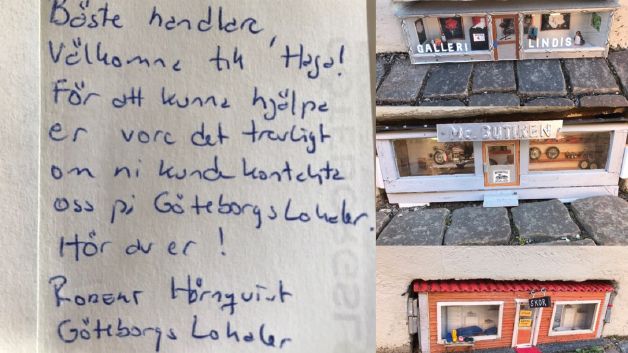 Bäste handlare,
Välkomna till Haga!
För att kunna hjälpa
er vore det trevligt
om ni kunde kontakta
oss på GöteborgsLokaler.
Hör av er!
Robert Hörnquist
Göteborgs Lokaler
GALLERI LINDIS
MC BUTIKEN
SKOR